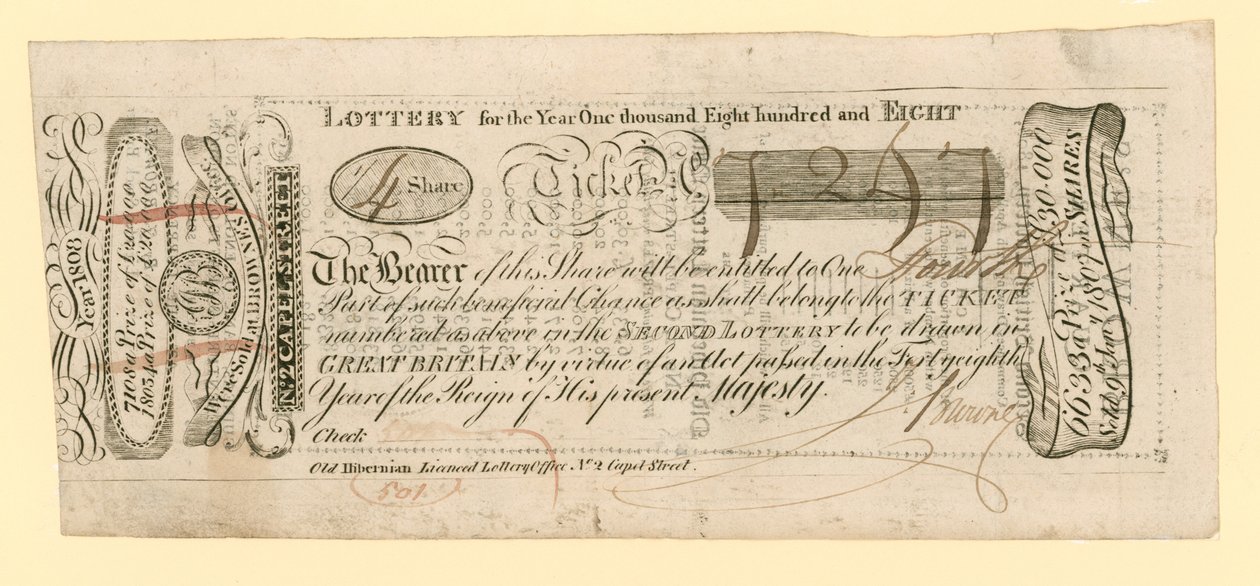 LOTTERY for the Year One thousand Eight hundred and EIGHT
4 Share
Ticket No 7.247
The Bearer of this Share will be entitled to One Fourth
Part of such beneficial Chance as shall belong to the TICKET
numbered as above in the SECOND LOTTERY to be drawn in
GREAT BRITAIN by virtue of an Act passed in the Forty eighth
Year of the Reign of His present Majesty.
Check
Browne
Old Hibernian Licenced Lottery Office No. 2 Capel Street.
501
Year 1808
7108 a Prize of £20000
1805 a Prize of £20.000
Were Sold at BROWNE'S Office
No. 2 CAPEL STREET
6033 a Prize of £30.000
Sold 9th Jany. 1807 in SHARES